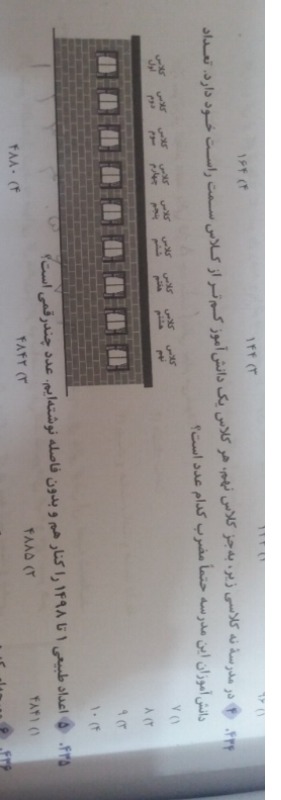 ۱) ۹۶
۳) ۱۴۴
۴) ۱۶۴
۴۳۴. ۴ در مدرسهٔ نه کلاسی زیر، به‌جز کلاس نهم، هر کلاس یک دانش‌آموز کم‌تر از کلاس سمت راست خود دارد. تعداد
دانش‌آموزان این مدرسه حتماً مضرب کدام عدد است؟
۱) ۷
۲) ۸
۳) ۹
۴) ۱۰
کلاس اول کلاس دوم کلاس سوم کلاس چهارم کلاس پنجم کلاس ششم کلاس هفتم کلاس هشتم کلاس نهم
۴۳۵. ۵ اعداد طبیعی ۱ تا ۱۴۹۸ را کنار هم و بدون فاصله نوشته‌ایم. عدد چندرقمی است؟
۱) ۴۸۴۱
۲) ۴۸۸۵
۳) ۴۸۴۲
۴) ۴۸۸۰
۴۳۶. ۶